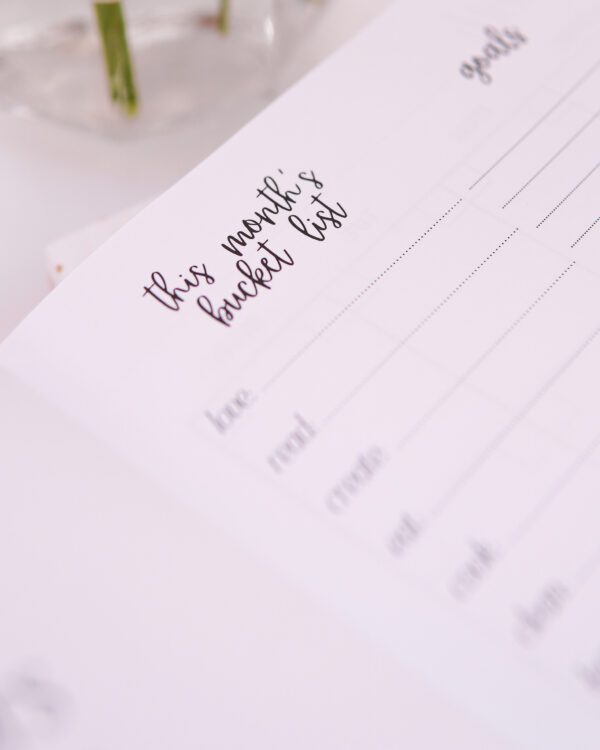 this month's
bucket list
goals
love
read
create
eat
cook
clean